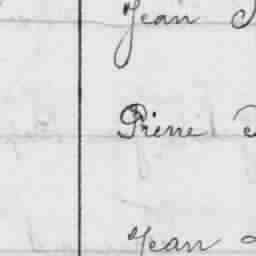 Jean
Pierre
Jean